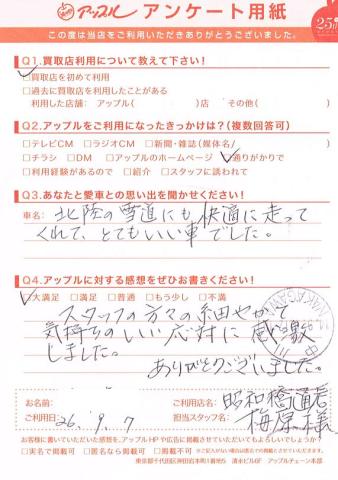 アップル アンケート用紙
25th
この度は当店をご利用いただきありがとうございました。
Q1.買取店利用について教えて下さい!
☑買取店を初めて利用
□過去に買取店を利用したことがある
利用した店舗: アップル( )店 その他( )
Q2.アップルをご利用になったきっかけは?(複数回答可)
□テレビCM □ラジオCM □新聞・雑誌(媒体名/ )
□チラシ □DM □アップルのホームページ ☑通りがかりで
□利用経験があるので □紹介 □スタッフに誘われて
Q3.あなたと愛車との思い出を聞かせください!
車名: 北陸の雪道にも快適に走って
くれて、とてもいい車でした。
Q4.アップルに対する感想をぜひお書きください!
☑大満足 □満足 □普通 □もう少し □不満
スタッフの方々の細やかで
気持ちのいい応対に感激
しました。
ありがとうございました。
NAKAGAWA
お名前: ご利用店名: 昭和橋通店
ご利用日: 26. 9. 7 担当スタッフ名: 梅原様
お客様に書いていただいた感想を、アップルHPや広告に掲載させていただいてもよろしいでしょうか?
□実名で掲載可 □匿名なら掲載可 □掲載不可 ※ご記入がない場合は匿名での掲載とさせていただきます。
東京都千代田区神田岩本町1番地5 清水ビル6F アップルチェーン本部